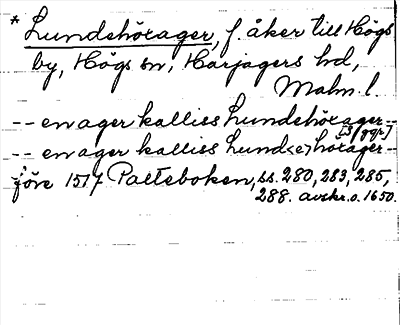 * Lundshörager, f. åker till Högs
by, Högs sn, Harjagers hd,
Malm. l.
-- en ager kalliss Lundshörager --
-- en ager kalliss Lund<e>hörager --
före 1517 Palteboken, ss. 280, 283, 285,
288. avskr. o. 1650.